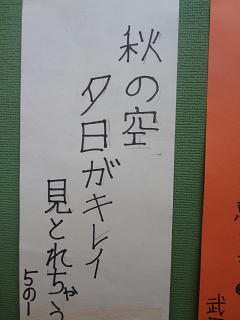 秋の空
夕日がキレイ
見とれちゃう
5の一
武